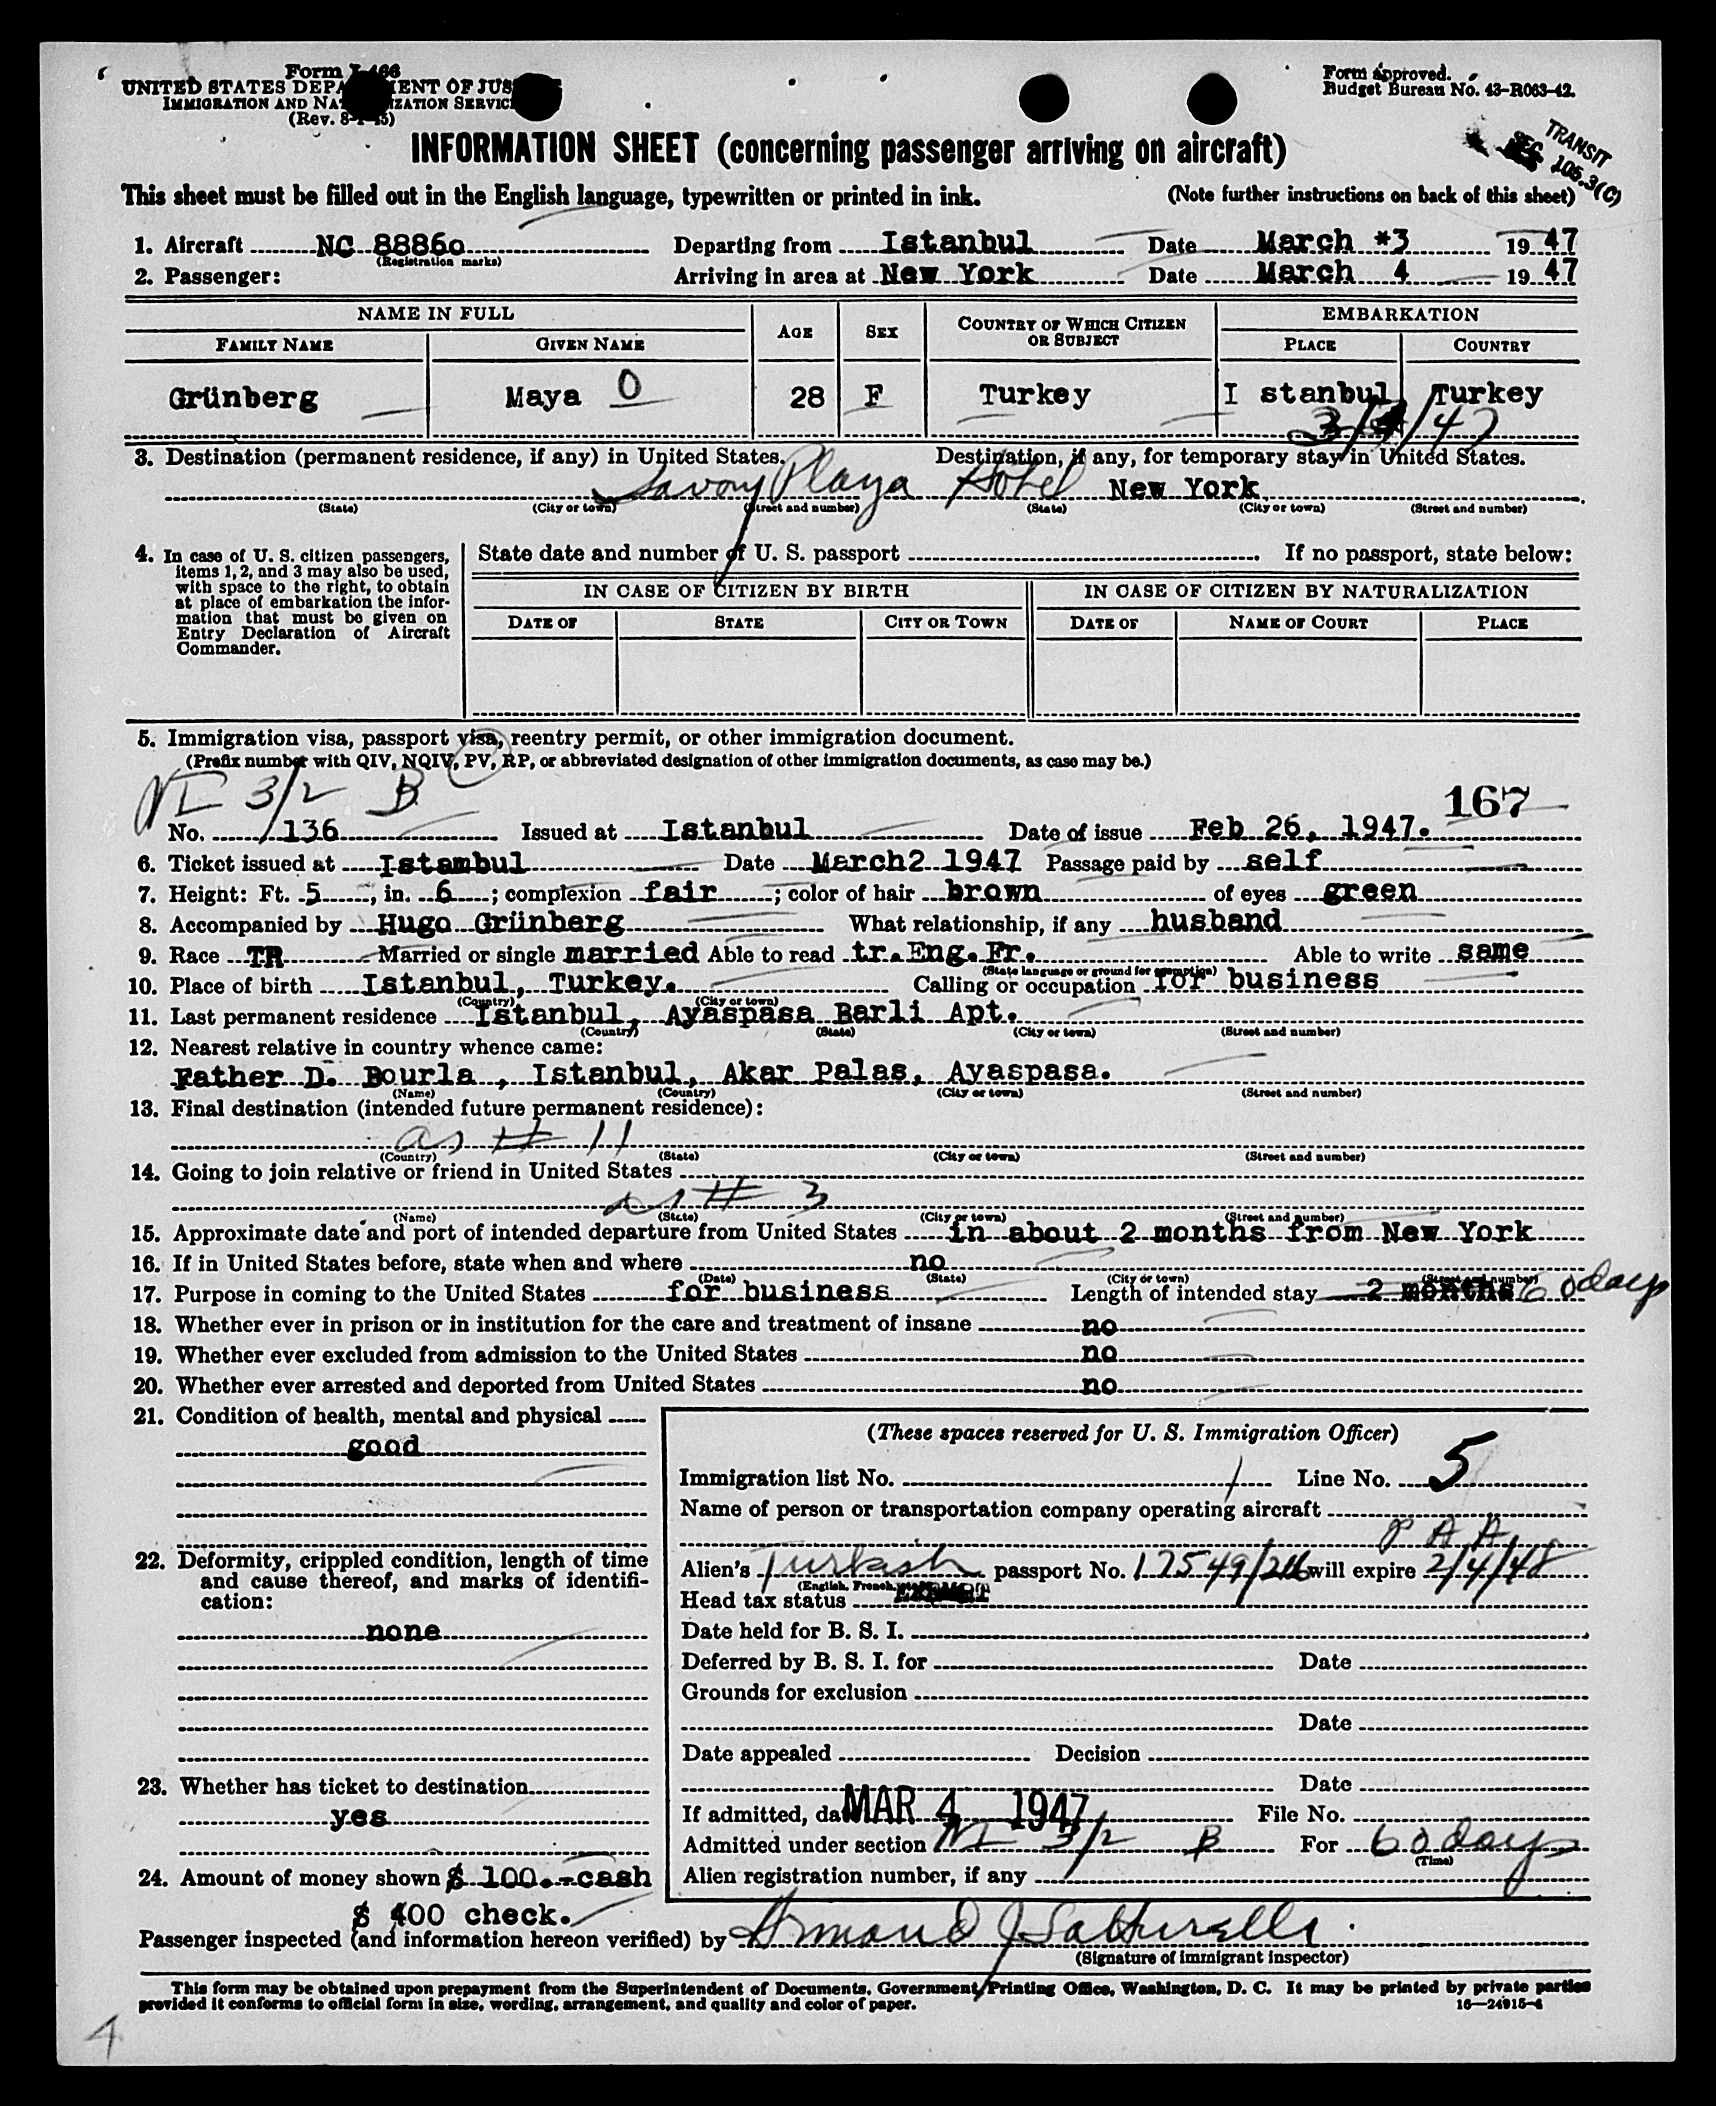 Form I-466
UNITED STATES DEPARTMENT OF JUSTICE
IMMIGRATION AND NATURALIZATION SERVICE
(Rev. 8-1-45)
Form approved.
Budget Bureau No. 43-R063-42.
INFORMATION SHEET (concerning passenger arriving on aircraft)
TRANSIT
SEC. 105.3(C)
This sheet must be filled out in the English language, typewritten or printed in ink. (Note further instructions on back of this sheet)
1. Aircraft NC 88860 Departing from Istanbul Date March *3 1947
(Registration marks)
2. Passenger: Arriving in area at New York Date March 4 1947
NAME IN FULL AGE SEX COUNTRY OF WHICH CITIZEN OR SUBJECT EMBARKATION
FAMILY NAME GIVEN NAME PLACE COUNTRY
Grünberg Maya O 28 F Turkey I stanbul Turkey
3. Destination (permanent residence, if any) in United States. Destination, if any, for temporary stay in United States.
Savoy Plaza Hotel New York
(State) (City or town) (Street and number) (State) (City or town) (Street and number)
4. In case of U. S. citizen passengers, items 1, 2, and 3 may also be used, with space to the right, to obtain at place of embarkation the information that must be given on Entry Declaration of Aircraft Commander.
State date and number of U. S. passport If no passport, state below:
IN CASE OF CITIZEN BY BIRTH IN CASE OF CITIZEN BY NATURALIZATION
DATE OF STATE CITY OR TOWN DATE OF NAME OF COURT PLACE
5. Immigration visa, passport visa, reentry permit, or other immigration document.
(Prefix number with QIV, NQIV, PV, RP, or abbreviated designation of other immigration documents, as case may be.)
NI 3/2 B
167
No. 136 Issued at Istanbul Date of issue Feb 26, 1947.
6. Ticket issued at Istambul Date March2 1947 Passage paid by self
7. Height: Ft. 5, in. 6; complexion fair; color of hair brown of eyes green
8. Accompanied by Hugo Grünberg What relationship, if any husband
9. Race TR Married or single married Able to read tr.Eng.Fr. Able to write same
(State language or ground for exemption)
10. Place of birth Istanbul, Turkey. Calling or occupation for business
(Country) (City or town)
11. Last permanent residence Istanbul, Ayaspasa Barli Apt.
(Country) (State) (City or town) (Street and number)
12. Nearest relative in country whence came:
Father D. Bourla , Istanbul, Akar Palas, Ayaspasa.
(Name) (Country) (City or town) (Street and number)
13. Final destination (intended future permanent residence):
as # 11
(Country) (State) (City or town) (Street and number)
14. Going to join relative or friend in United States
as # 3
(Name) (State) (City or town) (Street and number)
15. Approximate date and port of intended departure from United States in about 2 months from New York
16. If in United States before, state when and where no
(Date) (State) (City or town) (Street and number)
17. Purpose in coming to the United States for business Length of intended stay 2 months 60 days
18. Whether ever in prison or in institution for the care and treatment of insane no
19. Whether ever excluded from admission to the United States no
20. Whether ever arrested and deported from United States no
21. Condition of health, mental and physical
good
22. Deformity, crippled condition, length of time and cause thereof, and marks of identification:
none
23. Whether has ticket to destination
yes
24. Amount of money shown $ 100.-cash
$ 400 check.
(These spaces reserved for U. S. Immigration Officer)
Immigration list No. 1 Line No. 5
Name of person or transportation company operating aircraft
P A A
Alien's Turkish passport No. 17549/246 will expire 2/4/48
(English, French, etc.)
Head tax status EXEMPT
Date held for B. S. I.
Deferred by B. S. I. for Date
Grounds for exclusion
Date
Date appealed Decision
Date
If admitted, date MAR 4 1947 File No.
Admitted under section NI 3/2 B For 60 days
(Time)
Alien registration number, if any
Passenger inspected (and information hereon verified) by
(Signature of immigrant inspector)
This form may be obtained upon prepayment from the Superintendent of Documents, Government Printing Office, Washington, D. C. It may be printed by private parties
provided it conforms to official form in size, wording, arrangement, and quality and color of paper.
16—24915-4
4